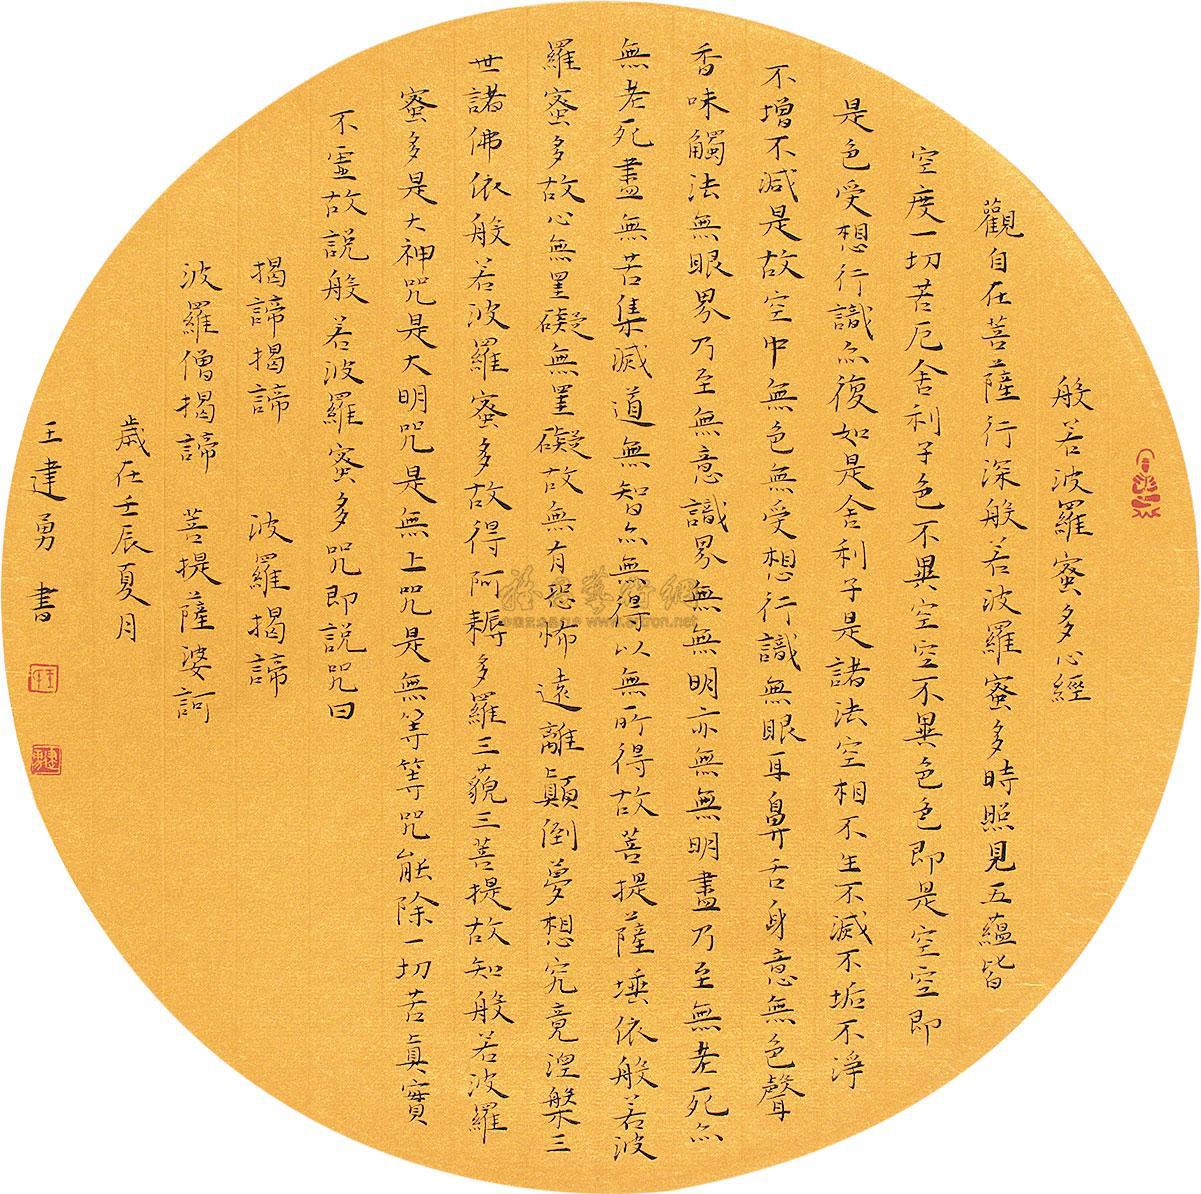 般若波羅蜜多心經
觀自在菩薩行深般若波羅蜜多時照見五蘊皆
空度一切苦厄舍利子色不異空空不異色色即是空空即
是色受想行識亦復如是舍利子是諸法空相不生不滅不垢不淨
不增不減是故空中無色無受想行識無眼耳鼻舌身意無色聲
香味觸法無眼界乃至無意識界無無明亦無無明盡乃至無老死亦
無老死盡無苦集滅道無智亦無得以無所得故菩提薩埵依般若波
羅蜜多故心無罣礙無罣礙故無有恐怖遠離顛倒夢想究竟涅槃三
世諸佛依般若波羅蜜多故得阿耨多羅三藐三菩提故知般若波羅
蜜多是大神咒是大明咒是無上咒是無等等咒能除一切苦真實
不虛故說般若波羅蜜多咒即說咒曰
揭諦揭諦 波羅揭諦
波羅僧揭諦 菩提薩婆訶
歲在壬辰夏月
王建勇 書
www.artron.net